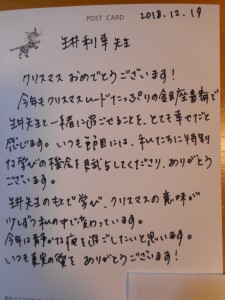 POST CARD
2018.12.19
生井利幸先生
クリスマスおめでとうございます!
今年もクリスマスムードたっぷりの銀座書斎で
生井先生と一緒に過ごせることを、とても幸せだと
感じます。いつも節目には、私たちに特別
な学びの機会を与えてくださり、ありがとう
ございます。
生井先生のもとで学び、クリスマスの意味が
少しずつ私の中で変わっています。
今年は静かな夜を過ごしたいと思います。
いつも真実の愛を ありがとうございます!